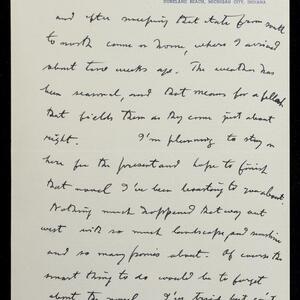 DUNELAND BEACH, MICHIGAN CITY, INDIANA
and after sweeping that state from south
to north came on home, where I arrived
about two weeks ago. The weather has
been seasonal, and that means for a fellow
that fields them as they come just about
right. I'm planning to stay on
here for the present and hope to finish
that novel I've been boasting to you about.
Nothing much happened that way out
west with so much landscape and sunshine
and so many about. Of course the
smart thing to do would be to forget
about the novel. I've tried but can't